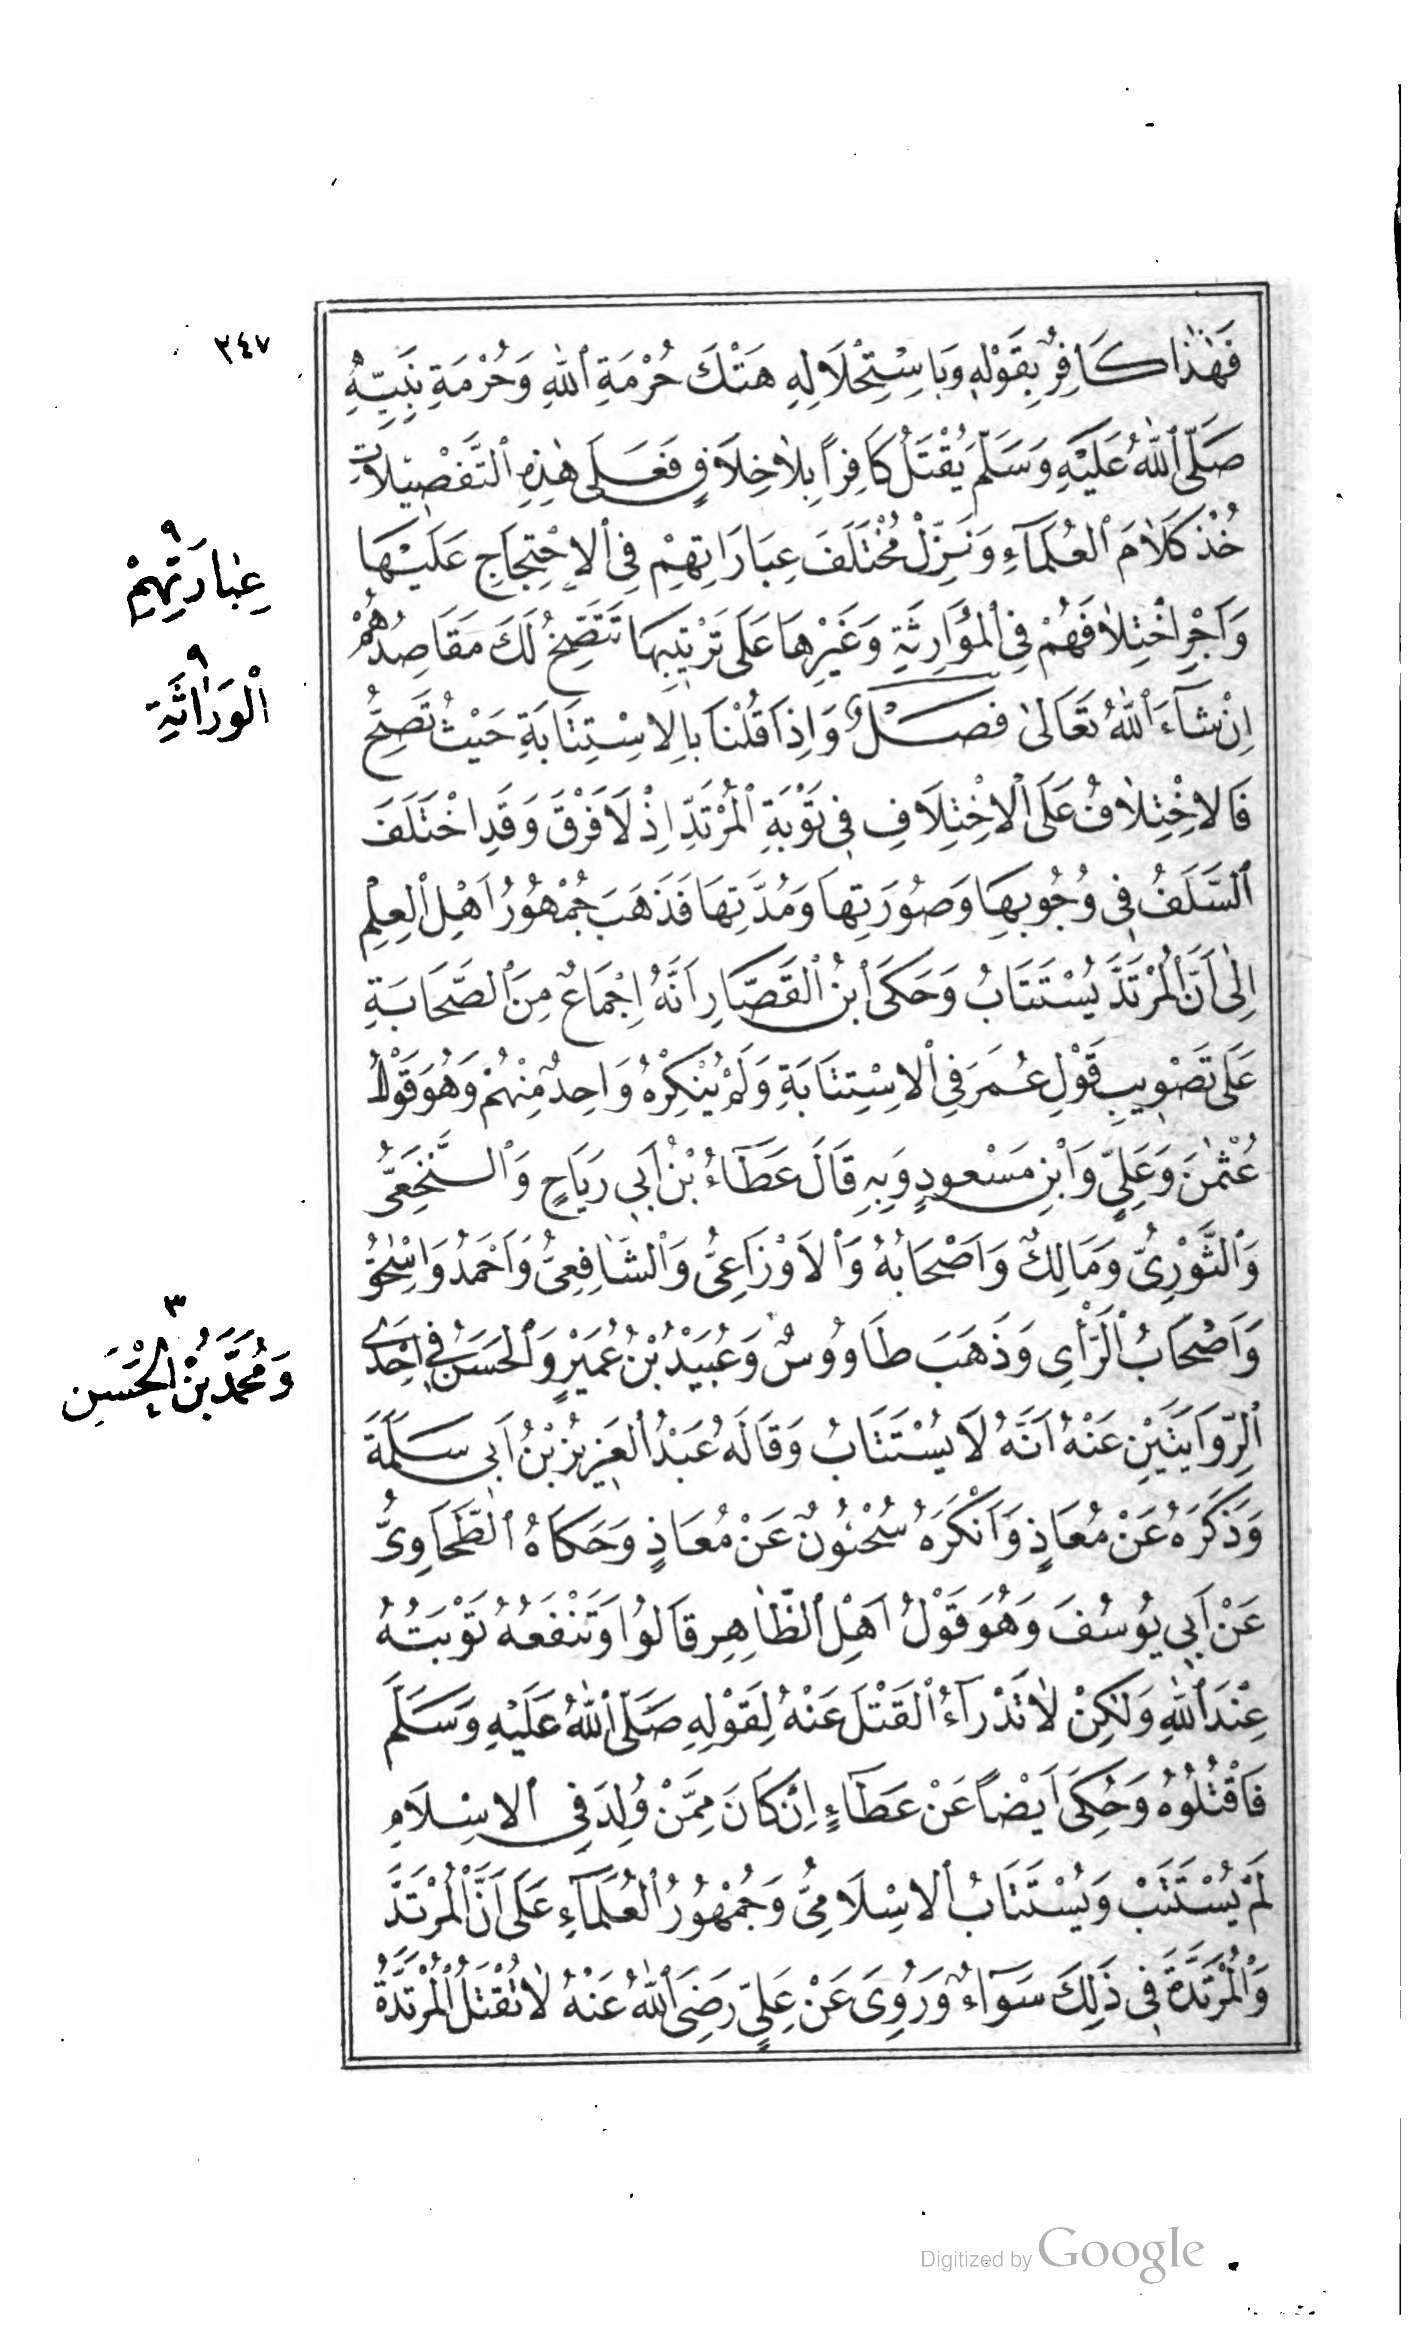 ٢٤٧
فَهٰذَا كَافِرٌ بِقَوْلِهِ وَبِاسْتِحْلَالِهِ هَتْكَ حُرْمَةِ اللهِ وَحُرْمَةِ نَبِيِّهِ
صَلَّى اللهُ عَلَيْهِ وَسَلَّمَ يُقْتَلُ كَافِرًا بِلَا خِلَافٍ فَعَلَى هٰذِهِ التَّفْصِيلَاتِ
خُذْ كَلَامَ الْعُلَمَآءِ وَنَزِّلْ مُخْتَلَفَ عِبَارَاتِهِمْ فِي الْاِحْتِجَاجِ عَلَيْهَا
وَاَجْرِ اخْتِلَافَهُمْ فِي الْمُوَارِثَةِ وَغَيْرِهَا عَلَى تَرْتِيبِهَا تَتَّضِحْ لَكَ مَقَاصِدُهُمْ
اِنْ شَآءَ اللهُ تَعَالٰى فَصْلٌ وَاِذَا قُلْنَا بِالْاِسْتِتَابَةِ حَيْثُ تَصِحُّ
فَالْاِخْتِلَافُ عَلَى الْاِخْتِلَافِ فِي تَوْبَةِ الْمُرْتَدِّ اِذْ لَا فَرْقَ وَقَدِ اخْتَلَفَ
السَّلَفُ فِي وُجُوبِهَا وَصُورَتِهَا وَمُدَّتِهَا فَذَهَبَ جُمْهُورُ اَهْلِ الْعِلْمِ
اِلٰى اَنَّ الْمُرْتَدَّ يُسْتَتَابُ وَحَكَى ابْنُ الْقَصَّارِ اَنَّهُ اِجْمَاعٌ مِنَ الصَّحَابَةِ
عَلَى تَصْوِيبِ قَوْلِ عُمَرَ فِي الْاِسْتِتَابَةِ وَلَمْ يُنْكِرْهُ وَاحِدٌ مِنْهُمْ وَهُوَ قَوْلُ
عُثْمٰنَ وَعَلِيٍّ وَابْنِ مَسْعُودٍ وَبِهِ قَالَ عَطَآءُ بْنُ اَبِي رَبَاحٍ وَالنَّخَعِيُّ
وَالثَّوْرِيُّ وَمَالِكٌ وَاَصْحَابُهُ وَالْاَوْزَاعِيُّ وَالشَّافِعِيُّ وَاَحْمَدُ وَاِسْحٰقُ
وَاَصْحَابُ الرَّأْيِ وَذَهَبَ طَاوُوسٌ وَعُبَيْدُ بْنُ عُمَيْرٍ وَالْحَسَنُ فِي اِحْدَى
الرِّوَايَتَيْنِ عَنْهُ اَنَّهُ لَا يُسْتَتَابُ وَقَالَهُ عَبْدُ الْعَزِيزِ بْنُ اَبِي سَلَمَةَ
وَذَكَرَهُ عَنْ مُعَاذٍ وَاَنْكَرَهُ سُحْنُونٌ عَنْ مُعَاذٍ وَحَكَاهُ الطَّحَاوِيُّ
عَنْ اَبِي يُوسُفَ وَهُوَ قَوْلُ اَهْلِ الظَّاهِرِ قَالُوا وَتَنْفَعُهُ تَوْبَتُهُ
عِنْدَ اللهِ وَلٰكِنْ لَا تَدْرَآءُ الْقَتْلَ عَنْهُ لِقَوْلِهِ صَلَّى اللهُ عَلَيْهِ وَسَلَّمَ
فَاقْتُلُوهُ وَحُكِيَ اَيْضًا عَنْ عَطَآءٍ اِنْ كَانَ مِمَّنْ وُلِدَ فِي الْاِسْلَامِ
لَمْ يُسْتَتَبْ وَيُسْتَتَابُ الْاِسْلَامِيُّ وَجُمْهُورُ الْعُلَمَآءِ عَلَى اَنَّ الْمُرْتَدَّ
وَالْمُرْتَدَّةَ فِي ذٰلِكَ سَوَآءٌ وَرُوِيَ عَنْ عَلِيٍّ رَضِيَ اللهُ عَنْهُ لَا تُقْتَلُ الْمُرْتَدَّةُ
٩
عِبَارَتِهِمْ
٩
الْوَرَاثَةِ
٣
وَمُحَمَّدَ بْنُ الْحَسَنِ
Digitized by Google